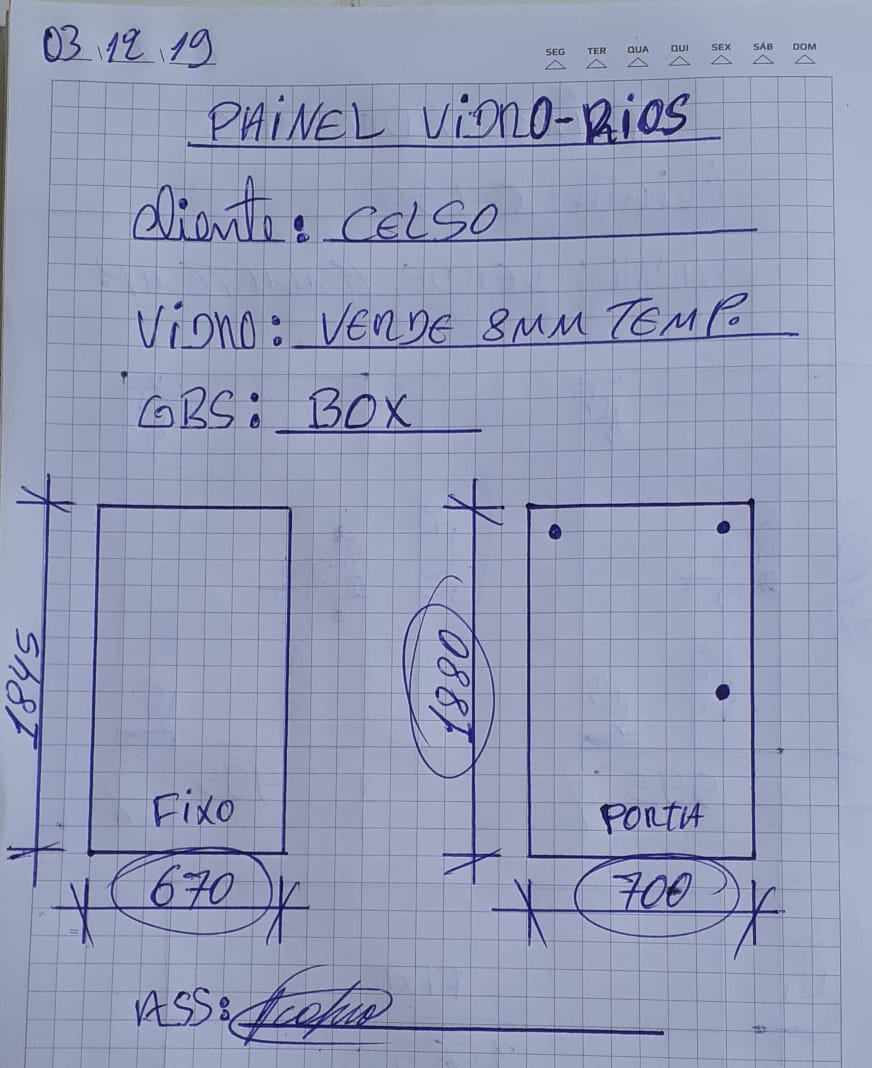 03.12.19
SEG TER QUA QUI SEX SÁB DOM
PAINEL VIDRO-RIOS
Cliente: CELSO
VIDRO: VERDE 8MM TEMP.
OBS: BOX
1845
1880
FIXO
PORTA
670
700
ASS: